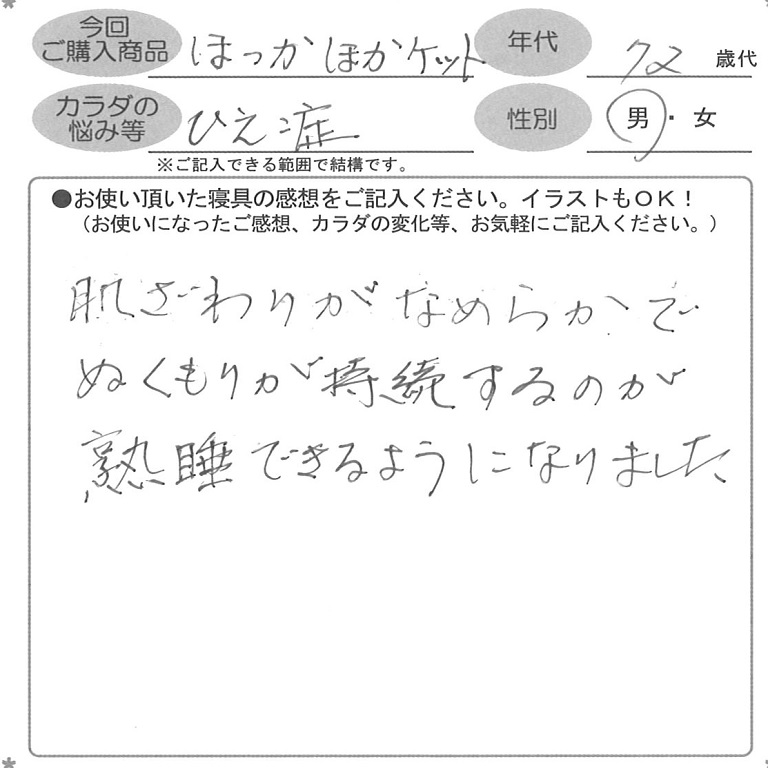 今回
ご購入商品
ほっかほかケット
年代
72
歳代
カラダの
悩み等
ひえ症
性別
男・女
※ご記入できる範囲で結構です。
●お使い頂いた寝具の感想をご記入ください。イラストもＯＫ！
（お使いになったご感想、カラダの変化等、お気軽にご記入ください。）
肌ざわりがなめらかで
ぬくもりが持続するのが
熟睡できるようになりました